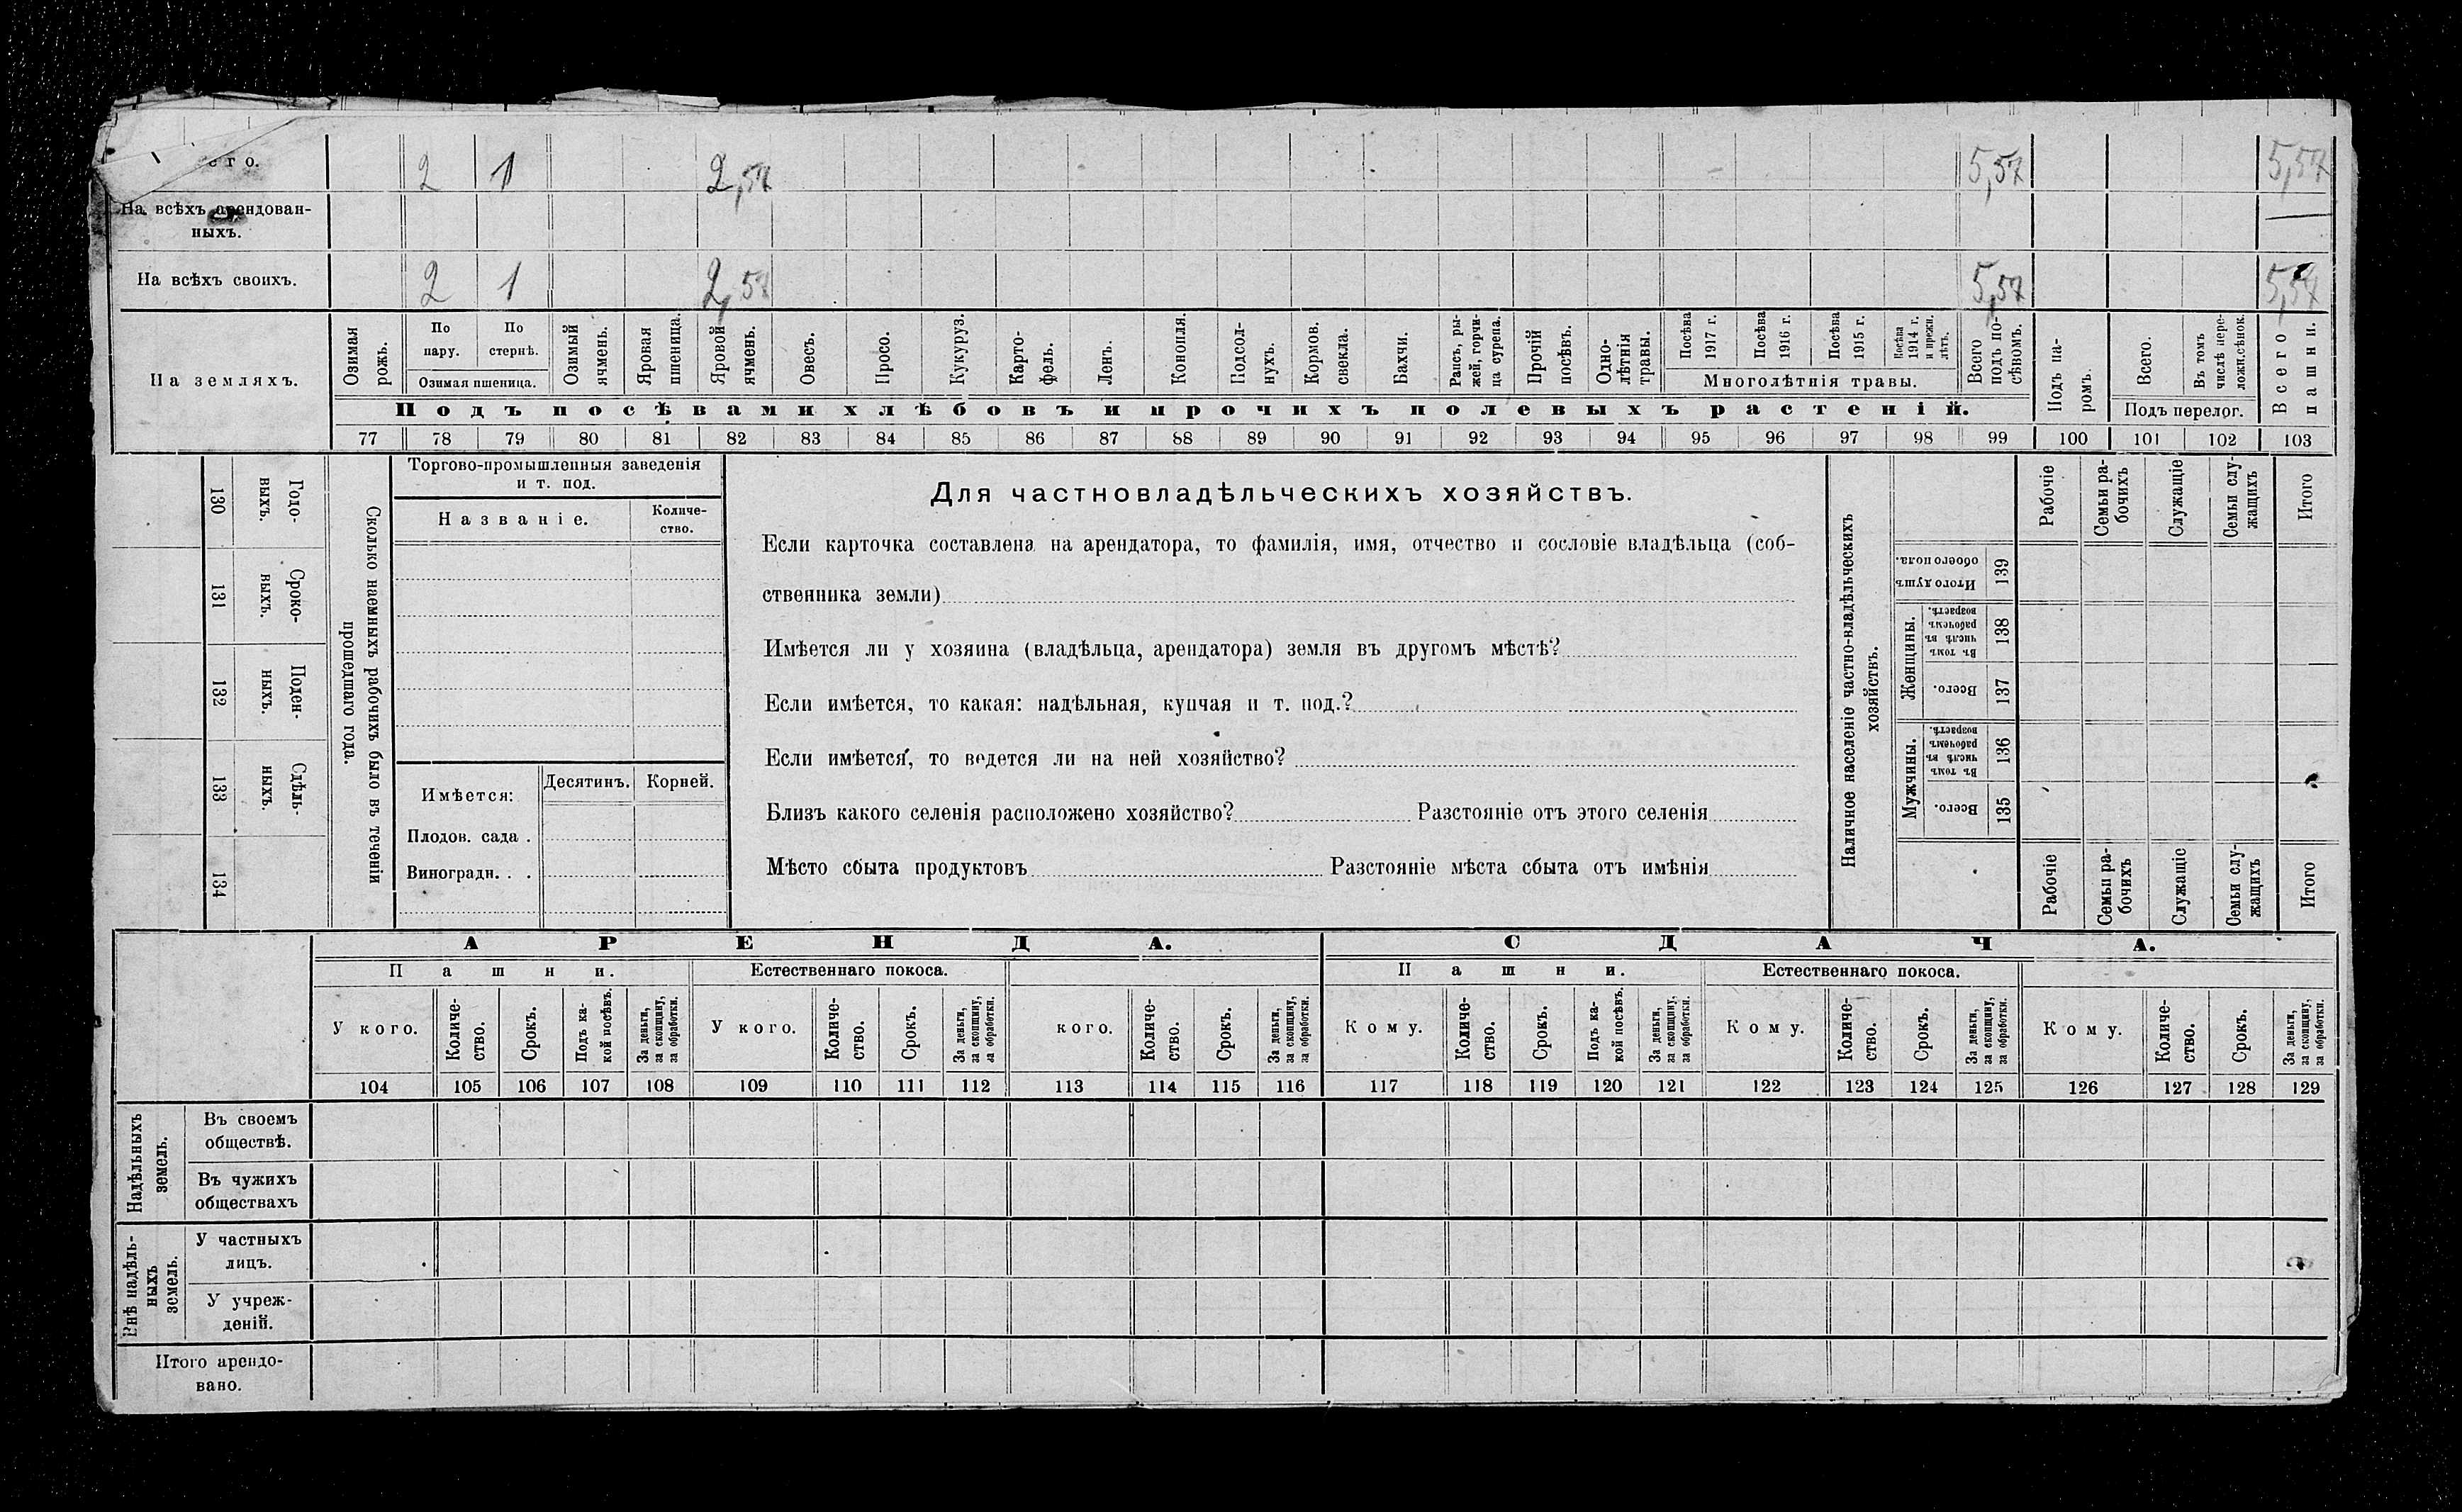 его. 2 1 2,57 5,57 5,57
На всѣхъ арендован-
ныхъ. —
На всѣхъ своихъ. 2 1 2,57 5,57 5,57
На земляхъ.
Озимая рожь.
По пару.
По стернѣ.
Озимая пшеница.
Озимый ячмень.
Яровая пшеница.
Яровой ячмень.
Овесъ.
Просо.
Кукуруз.
Карто-
фель.
Ленъ.
Конопля.
Подсол-
нухъ.
Кормов. свекла.
Бахчи.
Рапсъ, ры-
жей, горчи-
ца сурепа.
Прочій посѣвъ.
Одно-
лѣтнія травы.
Посѣва 1917 г.
Посѣва 1916 г.
Посѣва 1915 г.
Посѣва 1914 г. и прежн. лѣтъ.
Многолѣтнія травы.
Всего подъ по-
сѣвомъ.
Подъ па-
ромъ.
Всего.
Въ томъ числѣ пере-
лож.сѣнок.
Подъ перелог.
Всего пашни.
Подъ посѣвами хлѣбовъ и прочихъ полевыхъ растеній.
77 78 79 80 81 82 83 84 85 86 87 88 89 90 91 92 93 94 95 96 97 98 99 100 101 102 103
130 Годо-
выхъ.
131 Сроко-
выхъ.
132 Поден-
ныхъ.
133 Сдѣль-
ныхъ.
134
Сколько наемныхъ рабочихъ было въ теченіи
прошедшаго года.
Торгово-промышленныя заведенія
и т. под.
Названіе.
Количе-
ство.
Имѣется: Десятинъ. Корней.
Плодов. сада .
Виноградн. . .
Для частновладѣльческихъ хозяйствъ.
Если карточка составлена на арендатора, то фамилія, имя, отчество и сословіе владѣльца (соб-
ственника земли)
Имѣется ли у хозяина (владѣльца, арендатора) земля въ другомъ мѣстѣ?
Если имѣется, то какая: надѣльная, купчая и т. под.?
Если имѣется, то ведется ли на ней хозяйство?
Близъ какого селенія расположено хозяйство? Разстояніе отъ этого селенія
Мѣсто сбыта продуктовъ Разстояніе мѣста сбыта отъ имѣнія
Наличное населеніе частно-владѣльческихъ
хозяйствъ.
Рабочіе
Семьи ра-
бочихъ
Служащіе
Семьи слу-
жащихъ
Итого
Итого душъ обоего пола. 139
Женщины.
Въ томъ числѣ въ рабочемъ возрастѣ. 138
Всего. 137
Мужчины.
Въ томъ числѣ въ рабочемъ возрастѣ. 136
Всего. 135
Рабочіе
Семьи ра-
бочихъ
Служащіе
Семьи слу-
жащихъ
Итого
АРЕНДА. СДАЧА.
Пашни. Естественнаго покоса. Пашни. Естественнаго покоса.
У кого.
Количе-
ство.
Срокъ.
Подъ ка-
кой посѣвъ.
За деньги, за скопщину, за обработки.
У кого.
Количе-
ство.
Срокъ.
За деньги, за скопщину, за обработки.
кого.
Количе-
ство.
Срокъ.
За деньги, за скопщину, за обработки.
Кому.
Количе-
ство.
Срокъ.
Подъ ка-
кой посѣвъ.
За деньги, за скопщину, за обработки.
Кому.
Количе-
ство.
Срокъ.
За деньги, за скопщину, за обработки.
Кому.
Количе-
ство.
Срокъ.
За деньги, за скопщину, за обработки.
104 105 106 107 108 109 110 111 112 113 114 115 116 117 118 119 120 121 122 123 124 125 126 127 128 129
Надѣльныхъ
земель.
Въ своемъ
обществѣ.
Въ чужихъ
обществахъ
Внѣ надѣль-
ныхъ
земель.
У частныхъ
лицъ.
У учреж-
деній.
Итого арендо-
вано.